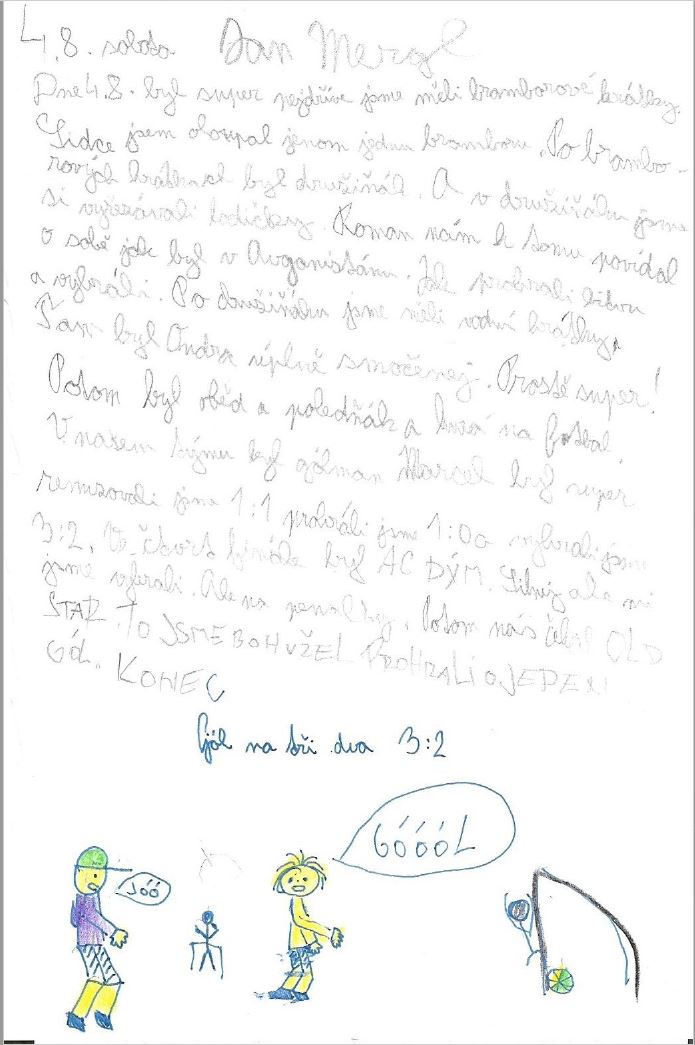 4.8. sobota Dan Mergl
Dne 4.8. byl super nejdříve jsme měli bramborové hrátky.
Lidce jsem oloupal jenom jednu bramboru. Po brambo-
rových hrátkách byl družiňák. A v družiňáku jsme
si vyřezávali lodičky. Roman nám k tomu povídal
o sobě jak byl v Avganistánu. Jak prohrali bitvu
a vyhráli. Po družiňáku jsme měli vodní hrátky.
Tam byl Ondra úplně smočenej. Prostě super!
Potom byl oběd a poledňák a hurá na fotbal
V našem týmu byl gólman Marcel byl super
remizovali jsme 1:1 prohráli jsme 1:0 a vyhrali jsme
3:2. Ve čtvrt finále byl AC DÝM. Silnej ale mi
jsme vyhrali. Ale na penalty. Potom nás čekal OLD
STAR. TO JSME BOHUŽEL PROHRALI O JEDEN
GÓL. KONEC
Gól na tři dva 3:2
GÓÓÓL
JÓÓ